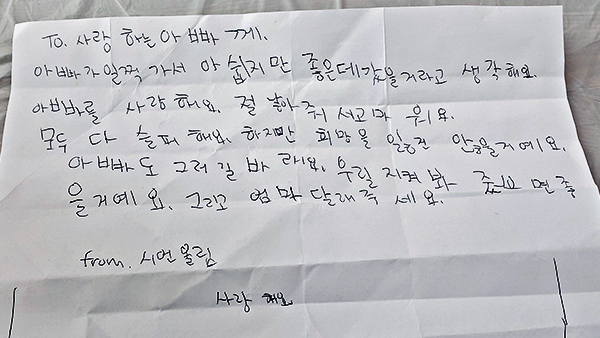 To. 사랑하는아빠께.
아빠가일찍가서 아쉽지만 좋은데갔을거라고 생각해요.
아빠를 사랑해요. 절 낳아줘서고마워요.
모두 다 슬퍼해요. 하지만 희망을 잃은건 않을거예요.
아빠도 그러길바래요. 우릴지켜봐 줬으면좋
을거예요. 그리고 엄마달래주세요.
from. 시언올림
사랑해요